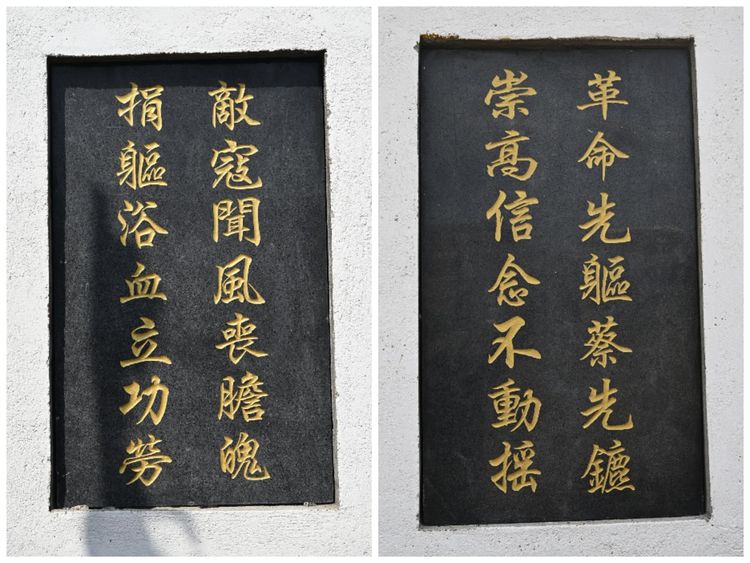 革命先軀蔡先鑣
崇髙信念不動摇
敵寇聞風喪膽魄
捐軀浴血立功勞